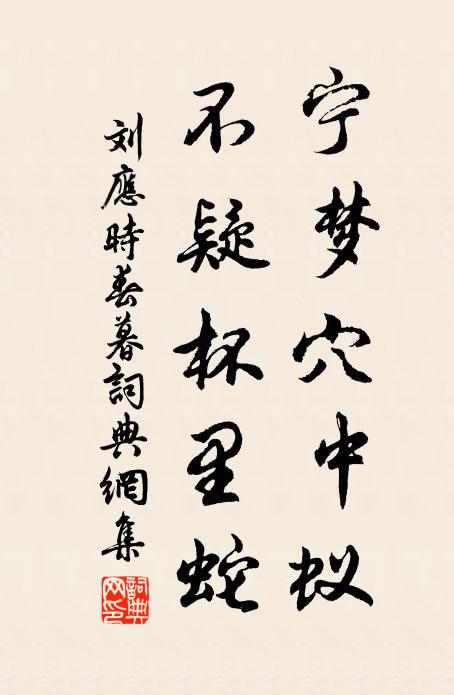 宁梦穴中蚁
不疑杯里蛇
刘應時春暮詞典網集
詞典网印